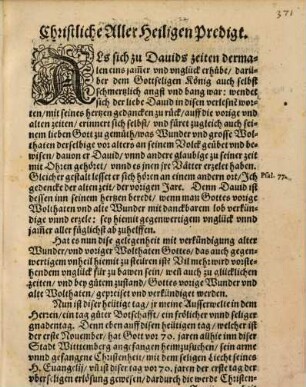 371
Christliche Aller Heiligen Predigt.
ALs sich zu Dauids zeiten derma-
len eins jamer vnd vnglück erhübe / darü-
ber dem Gottseligen König auch selbst
schmertzlich angst vnd bang war: wendet
sich der liebe Dauid in disen verleßne wor-
ten / mit seines hertzen gedancken zu rück / auff die vorige vnd
alten zeiten / erinnert sich selbst / vnd füret zugleich auch sei-
nem lieben Gott zu gemüth / was Wunder vnd grosse Wol-
thaten derselbige vor alters an seinem Volck geübet vnd be-
wisen / dauon er Dauid / vnnd andere glaubige zu seiner zeit
mit Ohren gehöret / vnnd es jnen jre Vätter erzelet haben.
Gleicher gestalt lesset er sich hören an einem andern ort / Ich
Psal. 77.
gedencke der alten zeit / der vorigen Jare. Denn Dauid ist
dessen inn seinem hertzen beredt / wenn man Gottes vorige
Wolthaten vnd alte Wunder mit danckbarem lob verkün-
dige vnd preyse: sey hiemit gegenwertigem vnglück vnnd
jamer aller füglichst ab zuhelffen.
Hat es nun dise gelegenheit mit verkündigung alter
Wunder / vnd voriger Wolthaten Gottes / das auch gegen-
wertigem vnheil hiemit zu steüren ist: Vil mehr wird vorste-
hendem vnglück für zu bawen sein / weñ auch zu glücklichen
zeiten / vnd bey gůtem zustand / Gottes vorige Wunder vnd
alte Wolthaten / gepreiset vnd verkündiget werden.
Nun ist diser heütigt tag / jr meine Ausserwelte in dem
Herren / ein tag gůter Botschafft / ein frölicher vnnd seliger
gnadentag. Denn eben auff disen heütigen tag / welcher ist
der erste Nouemb. hat Gott vor 70. jaren aůch inn diser
Stadt Wittemberg angefangen heimzusuchen / sein arme
vnnd gefangene Christenheit / mit dem seligen Liecht seines
H. Euangelij / vñ ist diser tag vor 70. jaren der erste tag der
vberseligen erlösung gewesen / dardurch die werde Christen